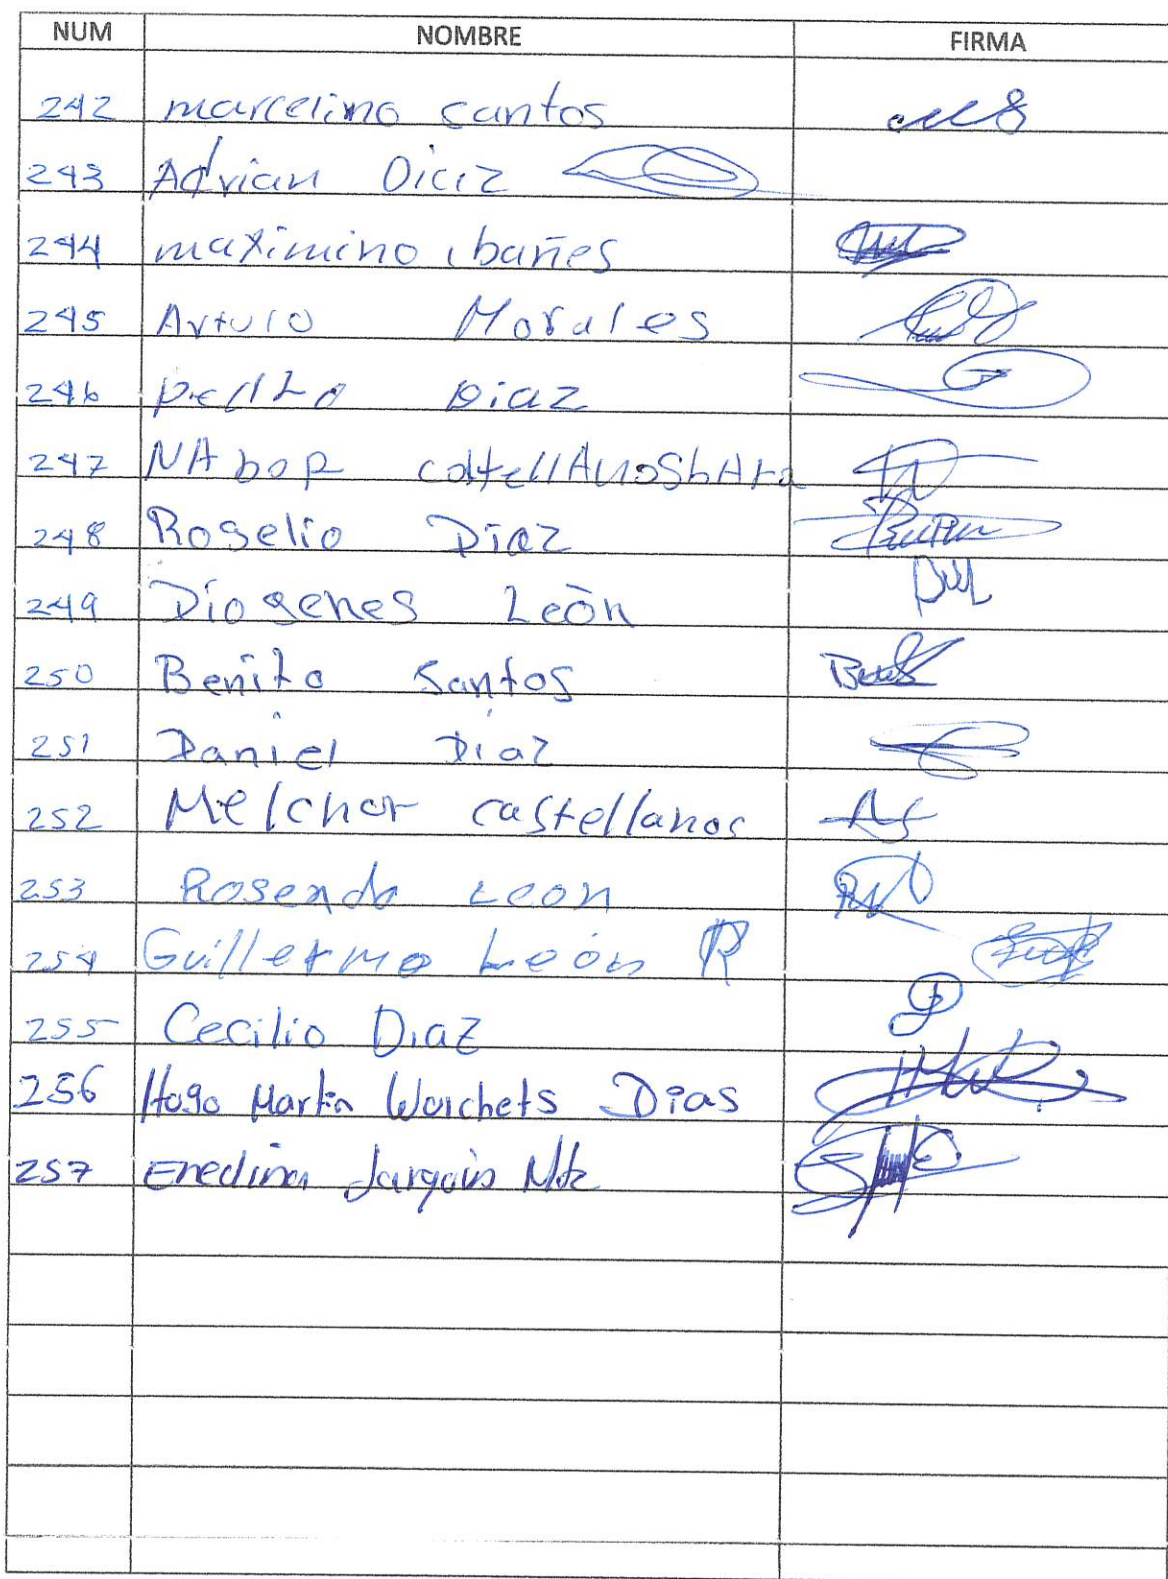 NUM NOMBRE FIRMA
242 marcelino santos
243 Adrian Diaz
244 maximino ibañes
245 Arturo Morales
246 pedro Diaz
247 NAboR
248 Rogelio Diaz
249 Diogenes Leòn
250 Benito Santos
251 Daniel Diaz
252 Melchor castellanos
253 Rosendo Leon
254 Guillermo León R
255 Cecilio Diaz
256 Hugo Martin Dias
257 Enedina Jarquin Mtz